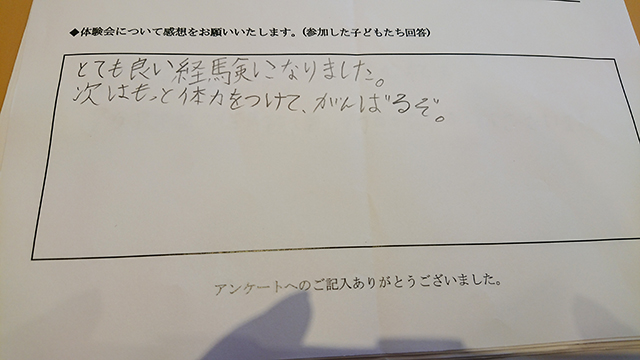 ◆体験会について感想をお願いいたします。(参加した子どもたち回答)
とても良い経験になりました。
次はもっと体力をつけて、がんばるぞ。
アンケートへのご記入ありがとうございました。